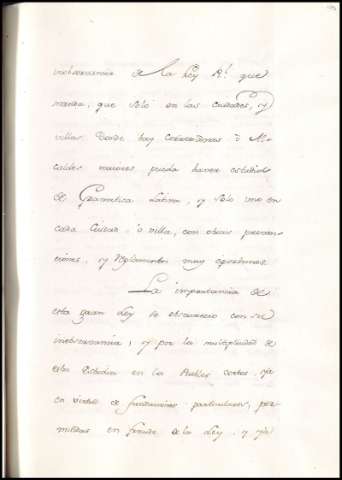 inobservancia de la Ley R.l que
manda, que solo en las Ciudades, y
villas donde hay Corregidores ò Al-
caldes maiores, pueda haver estudios
de Gramatica Latina, y solo uno en
cada Ciudad, ò villa, con otras preven-
ciones, y Reglamentos muy oportunos.
La importancia de
esta gran Ley se obscurecio con su
inobservancia, y por la multiplicidad de
estos Estudios en los Pueblos cortos, ya
en virtud de fundaciones particulares, per-
mitidas en fraude de la Ley, y ya